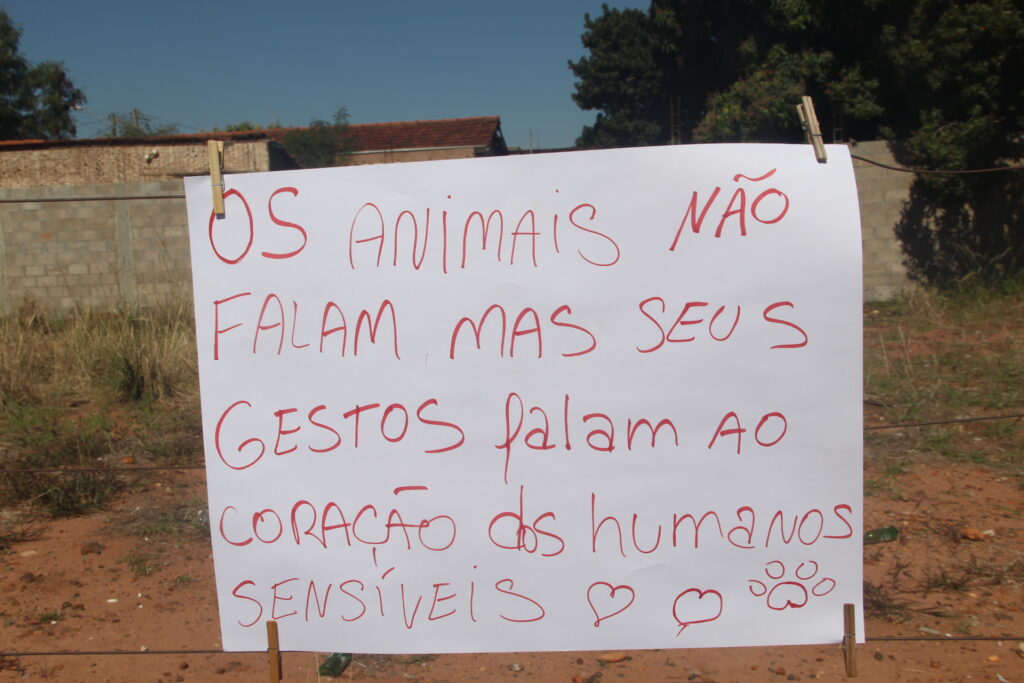 OS ANIMAIS NÃO
FALAM MAS SEUS
GESTOS falam AO
CORAÇÃO dos humanos
SENSÍVEIS